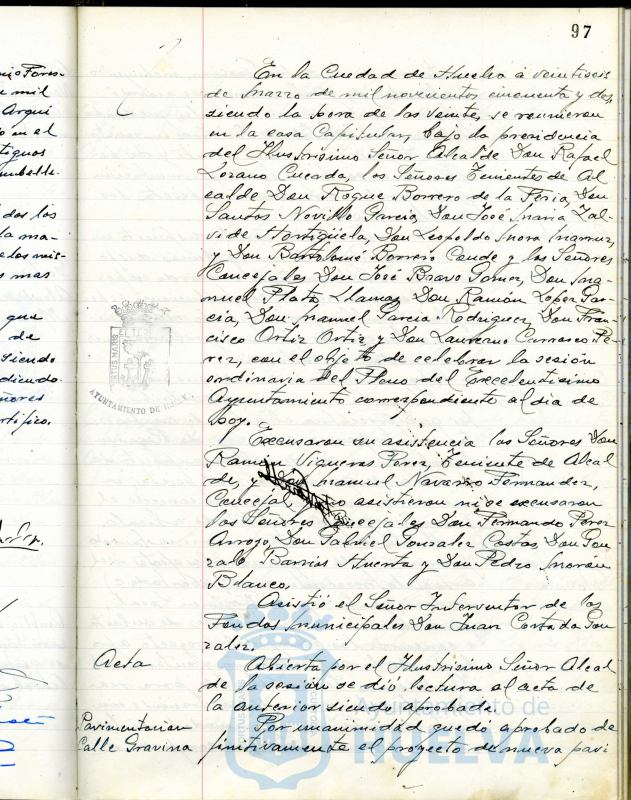 97
En la Ciudad de Huelva á veintiseis
de Marzo de mil novecientos cincuenta y dos,
siendo la hora de las veinte, se reunieron
en la casa Capitular, bajo la presidencia
del Ilustrisimo Señor Alcalde Don Rafael
Lozano Cuerda, los Señores Tenientes de Al
calde Don Roque Borrero de la Feria, Don
Santos Novillo Garcia, Don José Maria Zal
vide Hortigüela, Don Leopoldo Mora
y Don Bartolomé Borrero Conde y los Señores
Concejales Don José Bravo Gomez, Don Ma
nuel Plata Llamas, Don Ramón Lopez Gar
cia, Don Manuel Garcia Rodriguez, Don Fran
cisco Ortiz Ortiz y Don Laureano Carrasco Pe
rez, con el objeto de celebrar la sesión
ordinaria del Pleno del Excelentisimo
Ayuntamiento correspondiente al dia de
hoy.
Excusaron su asistencia los Señores Don
Ramón Vigueras Perez, Teniente de Alcal
de, y Manuel Navarro Fernandez,
Concejal no asistieron ni se excusaron
los Señores Concejales Don Fernando Perez
Arroyo, Don Gabriel Gonzalez Costas, Don Gon
zalo Barrios Huerta y Don Pedro Moron
Blanco.
Asistió el Señor Interventor de los
Fondos Municipales Don Juan Cortada Gon
zalez.
Acta
Abierta por el Ilustrisimo Señor Alcal
de la sesión se dió lectura al acta de
la anterior siendo aprobada.
Pavimentacion
Calle Gravina
Por unanimidad quedó aprobado de
finitivamente el proyecto de nueva pavi
AYUNTAMIENTO DE HUELVA
Ayuntamiento de
HUELVA